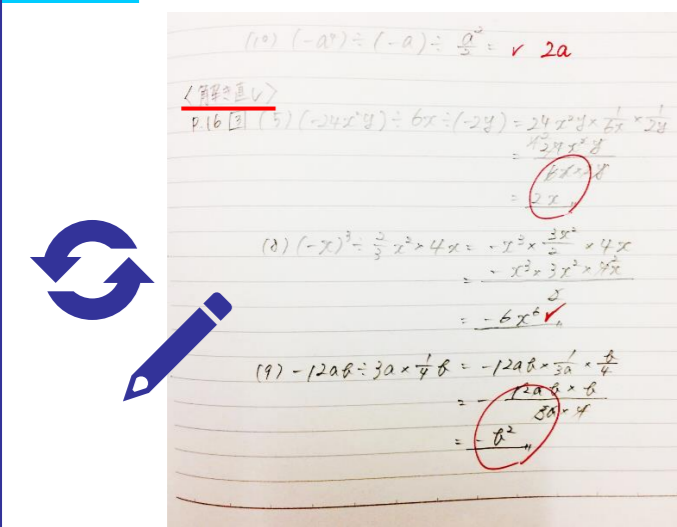 (10) (-a³) ÷ (-a) ÷ a²/2 = ✓ 2a
〈解き直し〉
P.16 [3] (5) (-24x²y) ÷ 6x ÷ (-2y) = 24x²y × 1/6x × 1/2y
= 24x²y / 6x×2y
= 2x
(8) (-x)³ ÷ 2/3 x² × 4x = -x³ × 3x²/2 × 4x
= -x³×3x²×4x / 2
= -6x⁶ ✓
(9) -12ab ÷ 3a × 1/4 b = -12ab × 1/3a × b/4
= - 12ab×b / 3a×4
= -b²